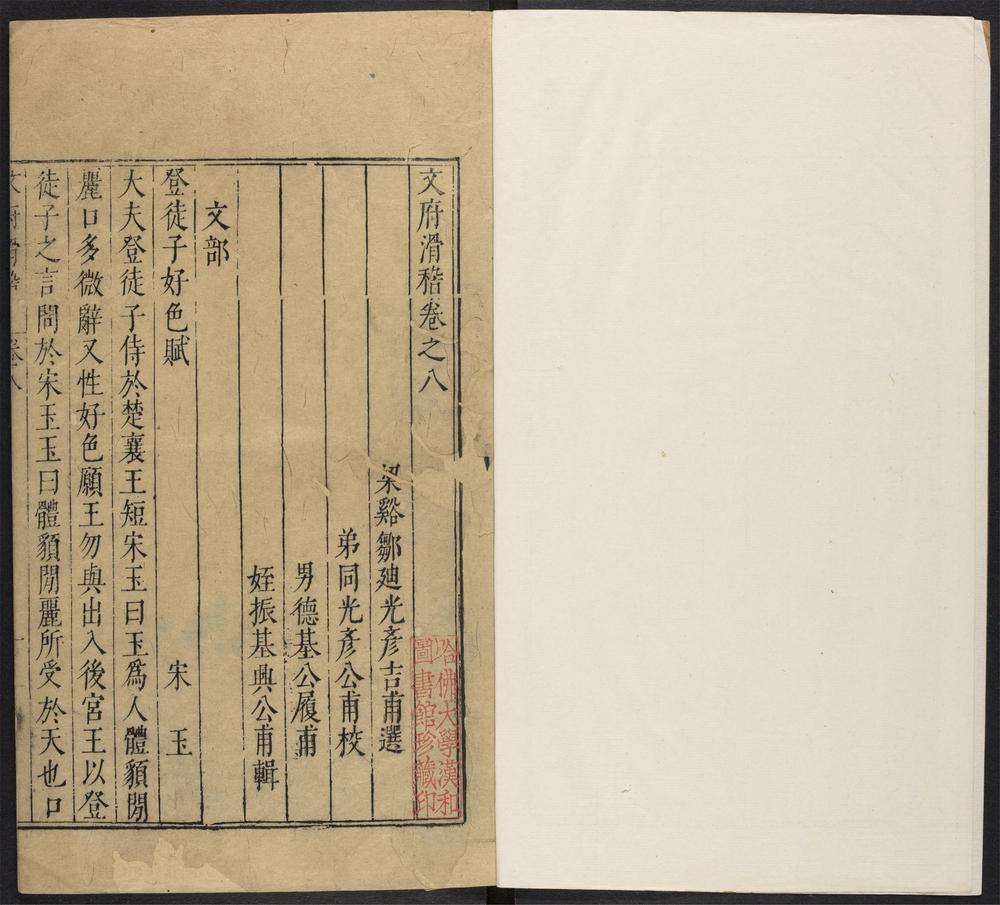 文府滑稽卷之八
梁谿鄒迪光彥吉甫選
弟同光彥公甫校
男德基公履甫
姪振基興公甫輯
文部
登徒子好色賦 宋玉
大夫登徒子侍於楚襄王短宋玉曰玉爲人體貌閒
麗口多微辭又性好色願王勿與出入後宮王以登
徒子之言問於宋玉玉曰體貌閒麗所受於天也口
卷八
哈佛大學漢和
圖書館珍藏印